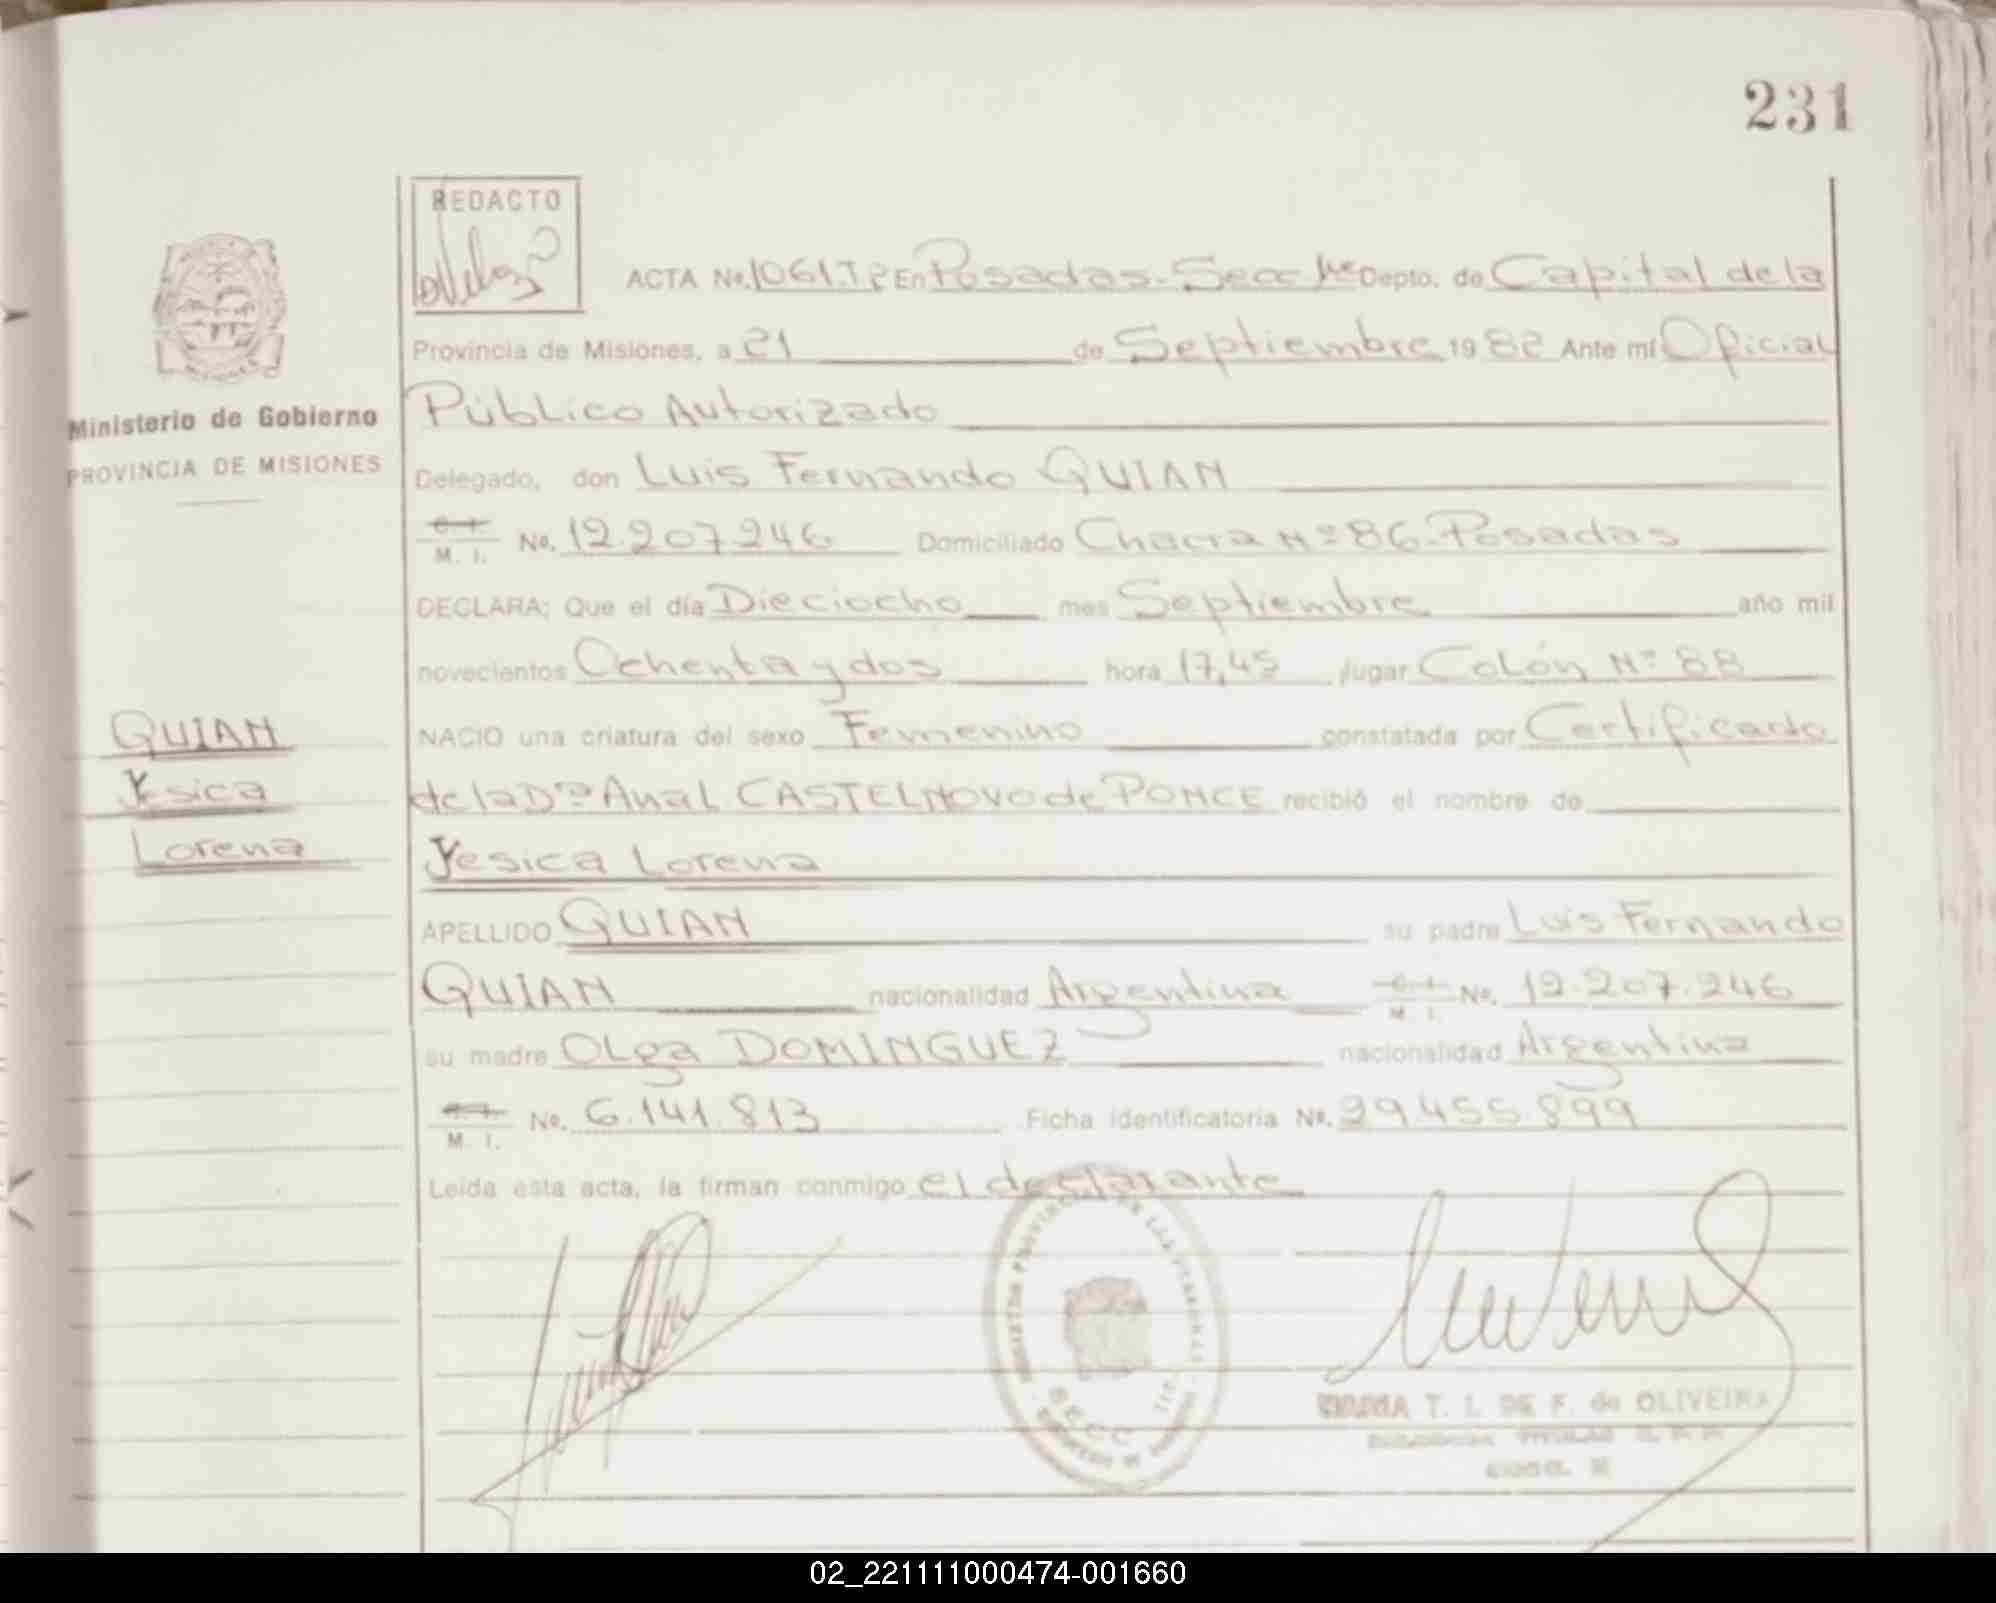 231
REDACTO
ACTA No. 1061.Tº2 En Posadas-Secc 1ra Depto. de Capital de la
Provincia de Misiones, a 21 de Septiembre 1982 Ante mí Oficial
Público Autorizado
Ministerio de Gobierno
PROVINCIA DE MISIONES
Delegado, don Luis Fernando QUIAN
C. I.
M. I. No. 12.207.246 Domiciliado Chacra Nº 86-Posadas
DECLARA: Que el día Dieciocho mes Septiembre año mil
novecientos Ochenta y dos hora 17,45 lugar Colón Nº 88
NACIO una criatura del sexo Femenino constatada por Certificado
de la Dra Anal CASTELNOVO de PONCE recibió el nombre de
Yesica Lorena
QUIAN
Yesica
Lorena
APELLIDO QUIAN su padre Luis Fernando
QUIAN nacionalidad Argentina C. I. M. I. No. 12.207.246
su madre Olga DOMINGUEZ nacionalidad Argentina
M. I. No. 6.141.813 Ficha identificatoria Nº. 29.455.899
Leída esta acta, la firman conmigo el declarante
REGISTRO PROVINCIAL DE LAS PERSONAS
SECC
T. I. DE F. de OLIVEIRA
02_221111000474-001660